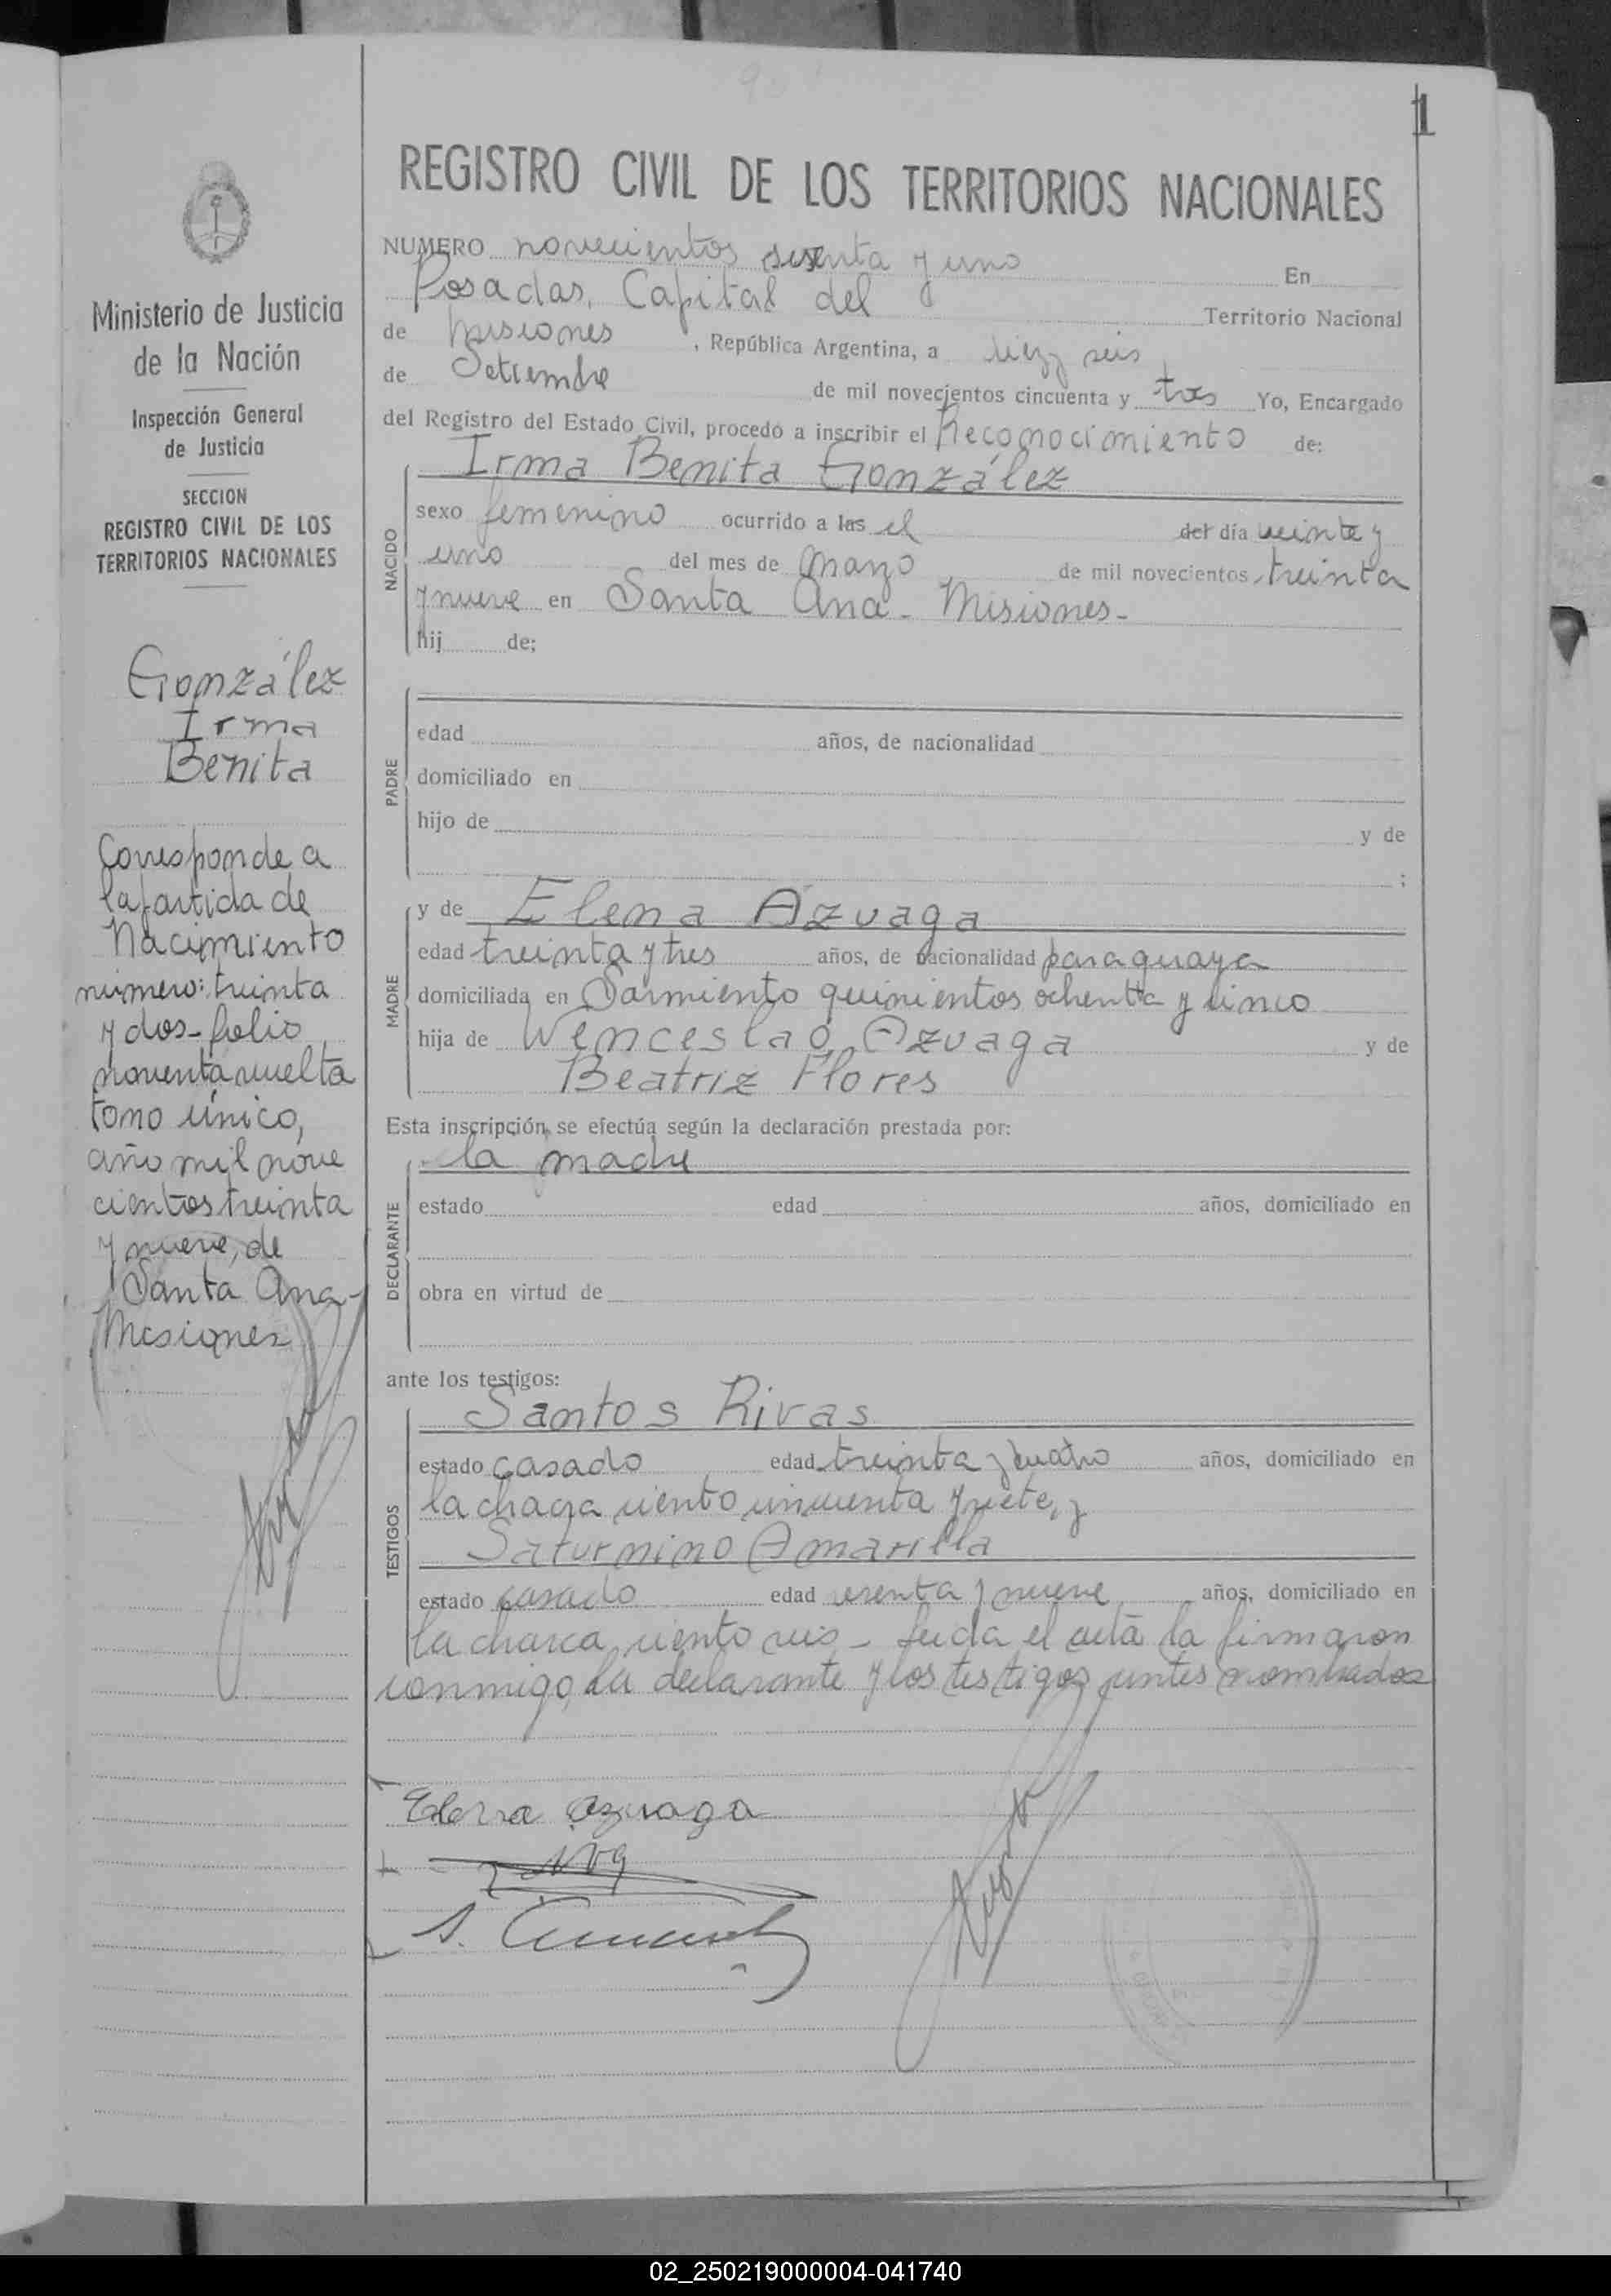 1
REGISTRO CIVIL DE LOS TERRITORIOS NACIONALES
NUMERO novecientos sesenta y uno En
Posadas, Capital del Territorio Nacional
de Misiones, República Argentina, a diez y seis
de Setiembre de mil novecientos cincuenta y tres Yo, Encargado
del Registro del Estado Civil, procedo a inscribir el Reconocimiento de:
Irma Benita González
NACIDO
sexo femenino ocurrido a las el del día veinte y
uno del mes de Marzo de mil novecientos treinta
y nueve en Santa Ana - Misiones -
hij de;
PADRE
edad años, de nacionalidad
domiciliado en
hijo de y de
;
MADRE
y de Elena Azuaga
edad treinta y tres años, de nacionalidad paraguaya
domiciliada en Sarmiento quinientos ochenta y cinco
hija de Wenceslao Azuaga y de
Beatriz Flores
Esta inscripción, se efectúa según la declaración prestada por:
DECLARANTE
la madre
estado edad años, domiciliado en
obra en virtud de
ante los testigos:
TESTIGOS
Santos Rivas
estado casado edad treinta y cuatro años, domiciliado en
la chacra ciento cincuenta y siete, y
Saturnino Amarilla
estado casado edad sesenta y nueve años, domiciliado en
la chacra, ciento seis - leida el acta la firmaron
conmigo, la declarante y los testigos antes nombrados
Elena Azuaga
Ministerio de Justicia
de la Nación
Inspección General
de Justicia
SECCION
REGISTRO CIVIL DE LOS
TERRITORIOS NACIONALES
González
Irma
Benita
Corresponde a
la partida de
Nacimiento
número: treinta
y dos - folio
noventa vuelta
tomo único,
año mil nove
cientos treinta
y nueve, de
Santa Ana -
Misiones
02_250219000004-041740